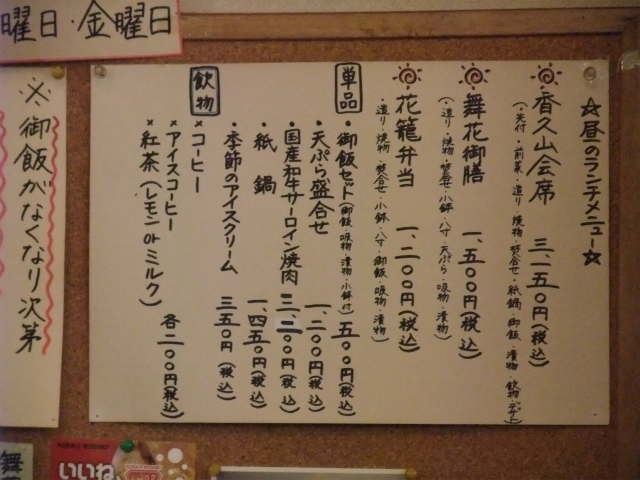 曜日・金曜日
☆昼のランチメニュー☆
香久山会席 三、一五〇円(税込)
(・先付・前菜・造り・焼物・焚合せ・紙鍋・御飯・漬物 飲物・デザート)
舞花御膳 一、五〇〇円(税込)
(・造り・焼物・焚合せ・小鉢・八寸・天ぷら・吸物・漬物)
花籠弁当 一、二〇〇円(税込)
・造り・焼物・焚合せ・小鉢・八寸・御飯・吸物・漬物)
単品
・御飯セット(御飯 吸物・漬物・小鉢付) 五〇〇円(税込)
・天ぷら盛合せ 一、二〇〇円(税込)
・国産和牛サーロイン焼肉 二、二〇〇円(税込)
・紙鍋 一、四五〇円(税込)
・季節のアイスクリーム 三五〇円(税込)
飲物
×コーヒー
×アイスコーヒー
×紅茶(レモン or ミルク) 各二〇〇円(税込)
※御飯がなくなり次第
舞
いいね